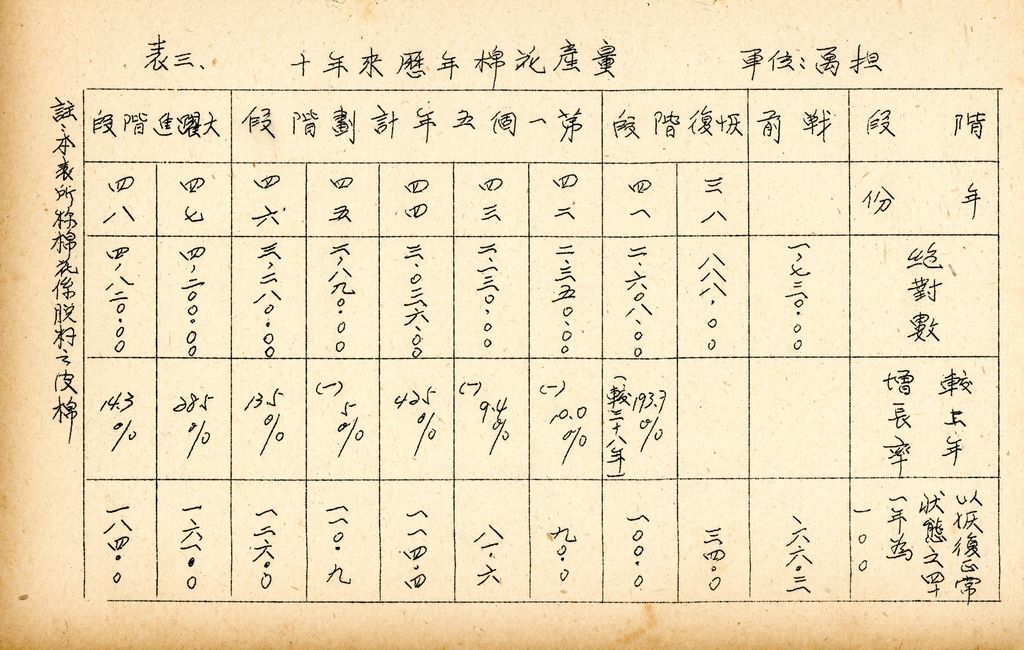 表三、 十年來歷年棉花產量 單位:萬担
階段 戰前 恢復階段 第一個五年計劃階段 大躍進階段
年份 三八 四一 四二 四三 四四 四五 四六 四七 四八
絕對數 一,七三〇.〇〇 八八八.〇〇 二,六〇八.〇〇 二,三五〇.〇〇 二,一三〇.〇〇 三,〇三六.〇〇 二,八九〇.〇〇 三,二八〇.〇〇 四,二〇〇.〇〇 四,八二〇.〇〇
較上年
增長率
193.7%
(較三十八年)
(一)10.0% (一)9.4% 42.5% (一)5% 13.5% 28.5% 14.3%
以恢復正常
狀態之四十
一年為
一〇〇
六六.三 三四.〇 一〇〇.〇 九〇.〇 八一.六 一一四.四 一一〇.九 一二六.〇 一六一.〇 一八四.〇
註:本表所称棉花係脱籽之皮棉